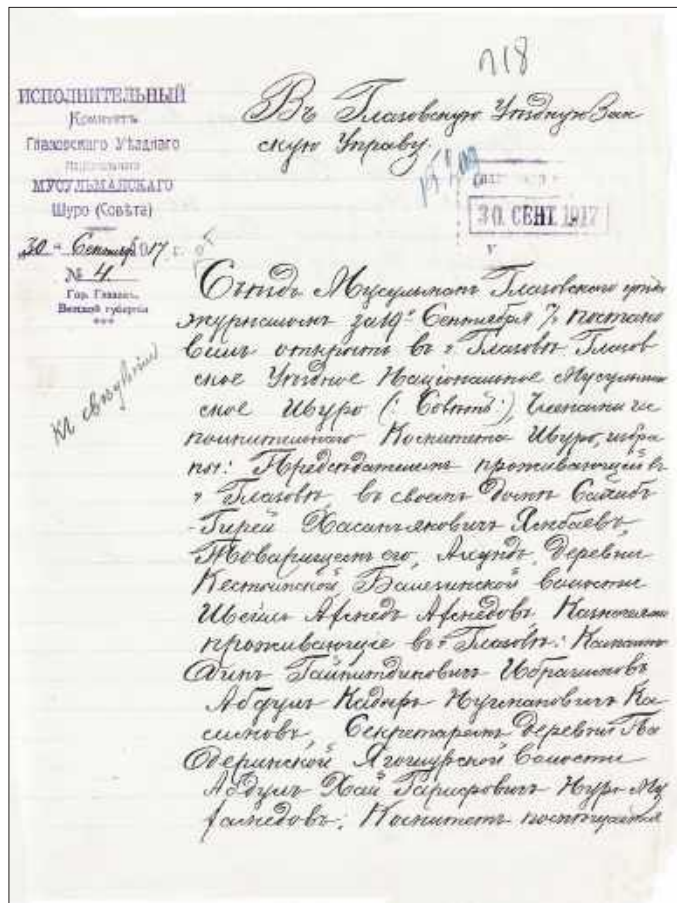 п18
ИСПОЛНИТЕЛЬНЫЙ
Комитетъ
Глазовскаго Уѣзднаго
МУСУЛЬМАНСКАГО
Шуро (Совѣта)
30 " Сентября 1917 г.
№ 4
Гор. Глазовъ,
Вятской губерніи
Въ Глазовскую Уѣздную Зем
скую Управу.
30 СЕНТ 1917
Къ свѣдѣнію
Съѣздъ Мусульманъ Глазовскаго уѣзда
журналомъ за 19е Сентября постано
вилъ открыть въ г. Глазовѣ Глазов
ское Уѣздное Національное Мусульман
ское Шуро (: Совѣтъ :), Членами ис
полнительнаго Комитета Шуро, избра
ны: Предсѣдателемъ проживающій въ
г. Глазовѣ, въ своемъ домѣ Сахибъ
-Гирей Хасаньяновичъ Янбаевъ,
Товарищемъ его, Ахундъ, деревни
Кестымской, Балезинской волости
Ахмедъ Ахмедовъ, Казначеями
проживающіе въ г. Глазовѣ: Камалет
динъ Гайнитдиновичъ Ибрагимовъ
Абдулъ Кадыръ Нугмановичъ Ка
симовъ, Секретаремъ деревни Па
деринской Ягошурской волости
Абдулъ Хай Гарифовичъ Нуръ-Му
хамедовъ. Комитетъ помѣщается